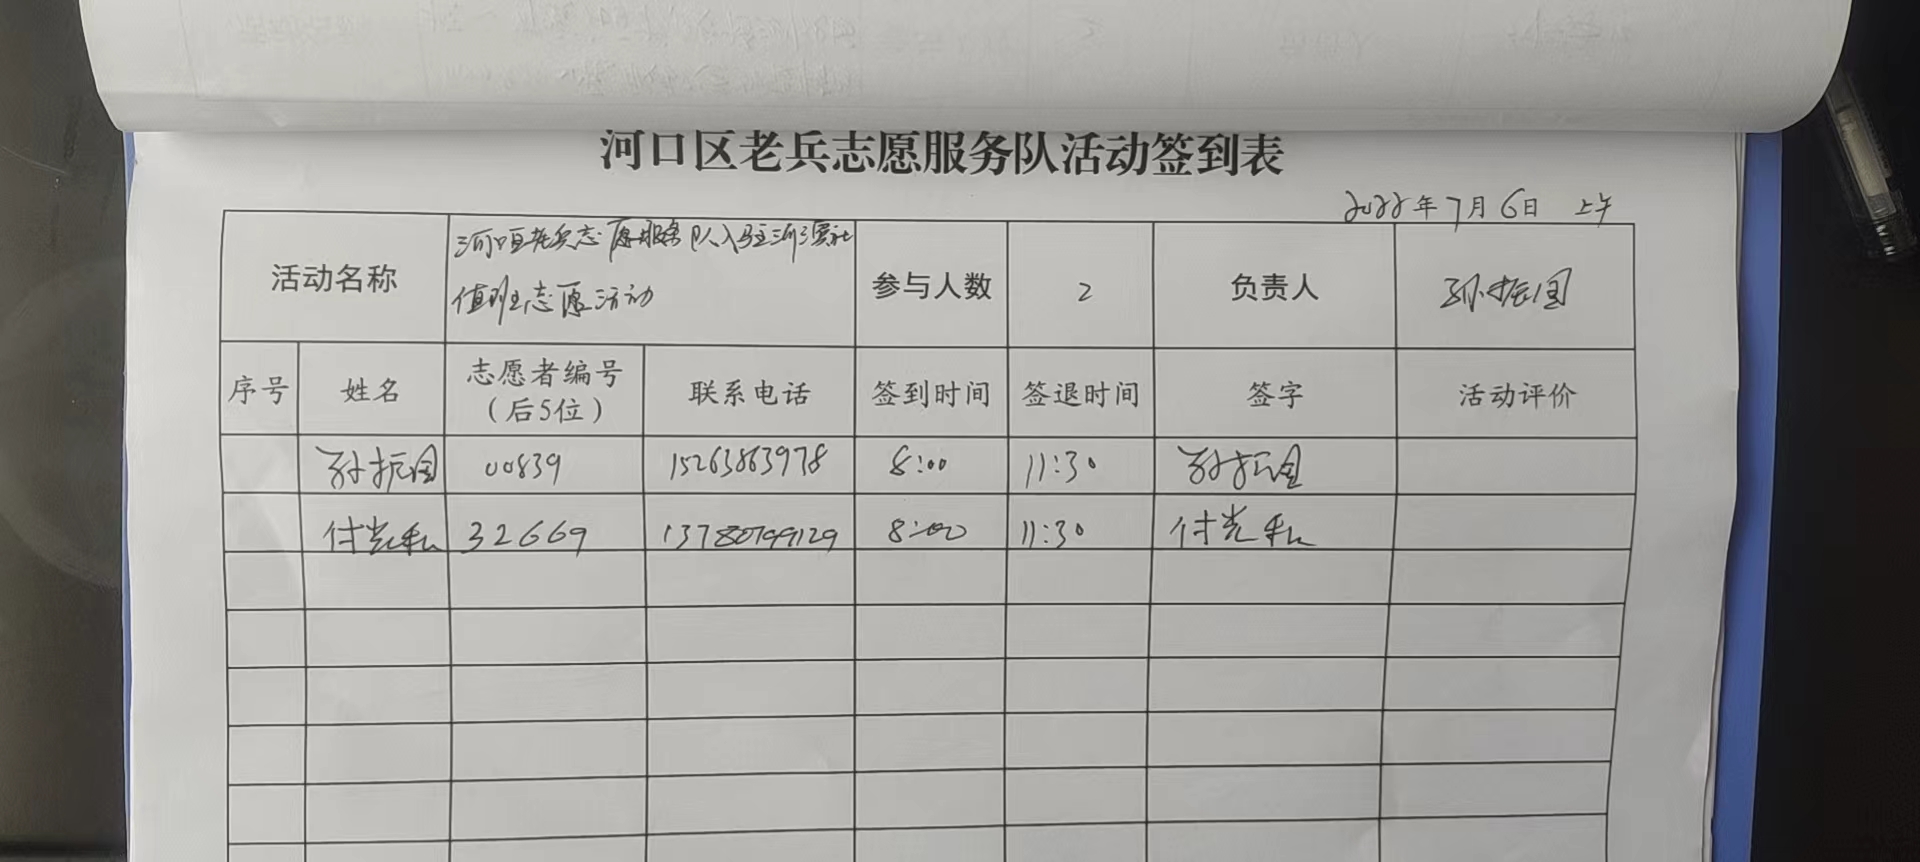 河口区老兵志愿服务队活动签到表
2022年7月6日 上午
活动名称 河口区老兵志愿服务队入驻河滨社 参与人数 2 负责人 孙振国
值班志愿活动
序号 姓名 志愿者编号 联系电话 签到时间 签退时间 签字 活动评价
（后5位）
孙振国 00839 15263863978 8:00 11:30 孙振国
付光私 32669 13780799129 8:00 11:30 付光私